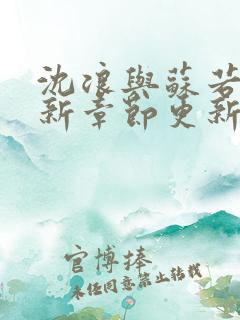 沈浪與蘇若
新章節更新
官博捧
未任同意禁止转载